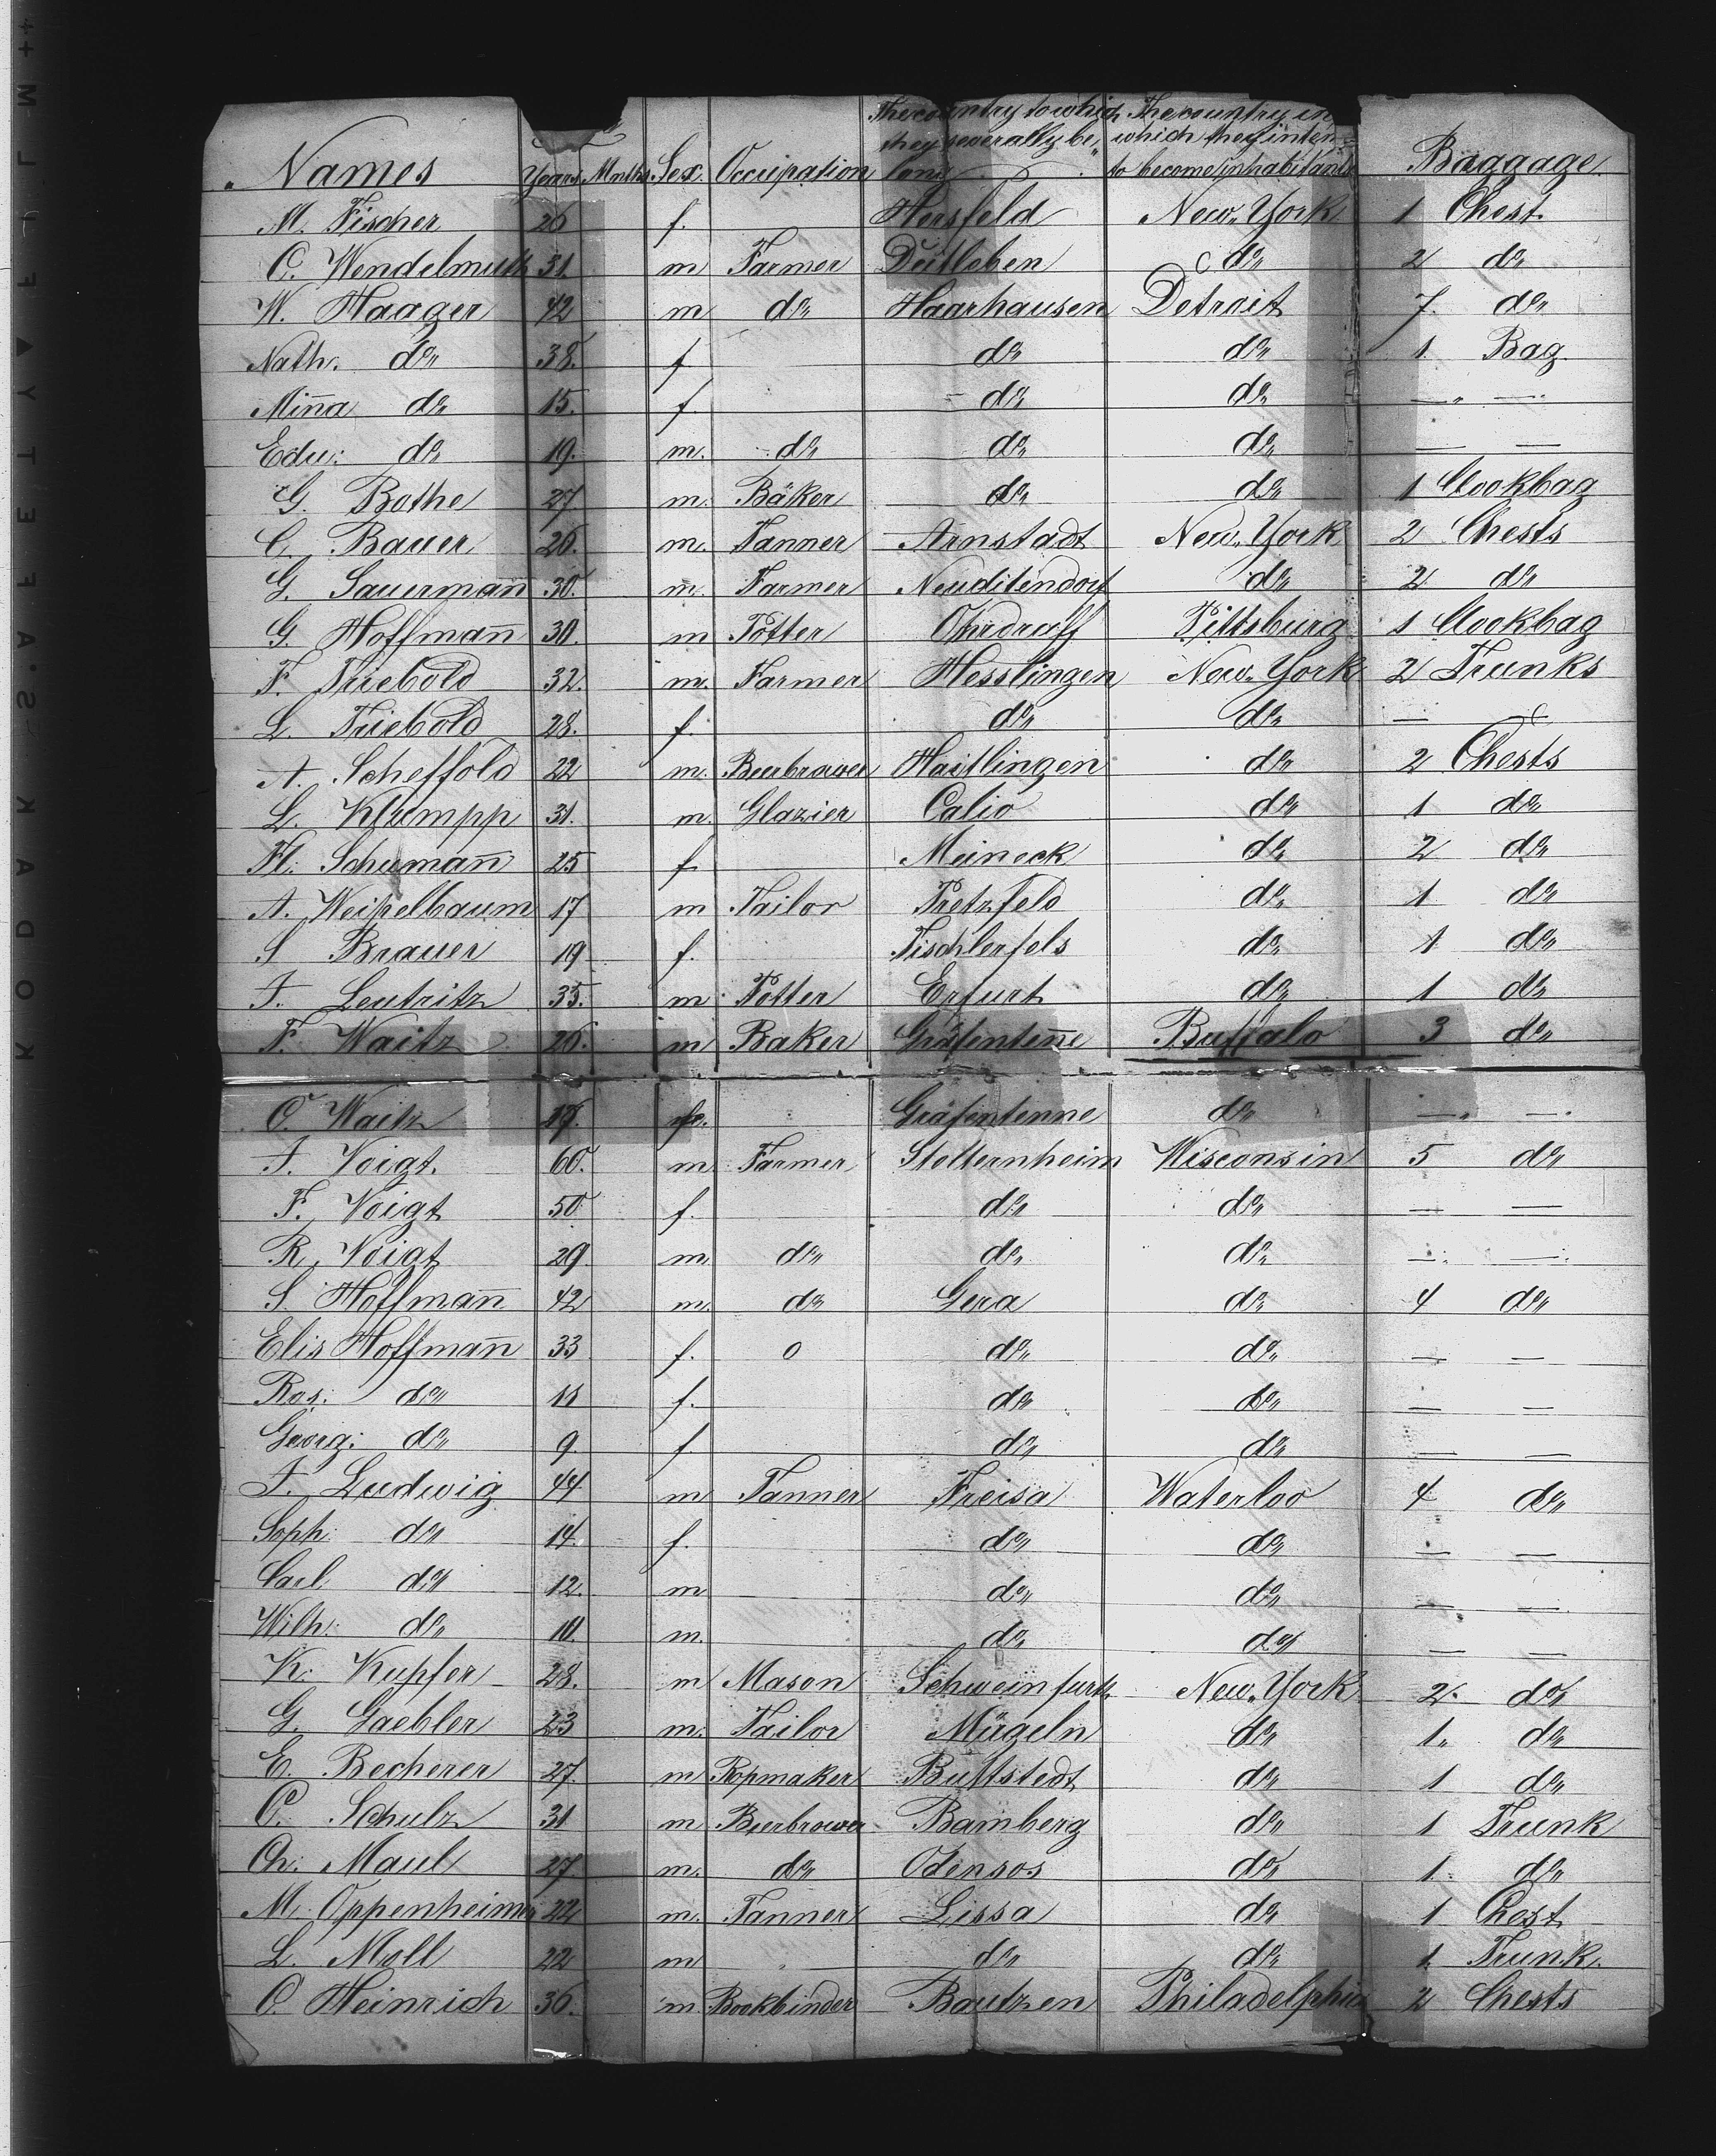 Names Years Mnths Sex. Occupation The country to which they severally belong The country in which they intend to become inhabitants Baggage
M. Fischer 26 f. Hersfeld New York 1 Chest
C. Wendelmuth 31. m Farmer Deitleben do 2 do
W. Haager 42 m do Haarhausen Detroit 7. do
Nath. do 38. f do do 1. Bag
Miña do 15. f. do do — —
Edu: do 19. m. do do do — —
G. Bothe 27. m. Bäker do do 1 Clookbag
C. Bauer 26. m. Tanner Arnstadt New York 2 Chests
G. Sauermañ 30. m. Farmer Neuditendorf do 2 do
G. Hoffmañ 30. m Potter Ohrdruff Pittsburg 1 Clookbag
F. Triebold 32. m. Farmer Hesslingen New York 2 Trunks
L. Triebold 28. f. do do — —
A. Scheffold 22 m. Beerbrower Haitlingen do 2 Chests
L. Klumpp 31. m. Glazier Calio do 1 do
Fl: Schumañ 25 f Meineck do 2 do
A. Weihelbaum 17 m Tailor Pretzfeld do 1 do
S Brauer 19 f. Tischlerfels do 1 do
A. Leutritz 35. m Potter Erfurt do 1 do
F. Waitz 26. m Baker Gräfenteñe Buffalo 3 do
C. Waitz Gräfentenne do — —
A. Voigt. 60. m Farmer Stolternheim Wisconsin 5 do
F. Voigt 50 f. do do — —
R. Voigt 29. m. do do do — —
S. Hoffmañ 42 m. do Gera do 4 do
Elis Hoffmañ 33 f. 0 do do — —
Ros: do 11 f. do do — —
Georg: do 9. f. do do — —
A. Ludwig 44 m Tanner Freisa Waterloo 4 do
Soph: do 14. f. do do — —
Carl do 12. m do do — —
Wilh: do 10. m. do do — —
K. Kupfer 28. m Mason Schweinfurth New York 2. do
G. Gaebler 23 m. Tailor Mügeln do 1. do
E. Becherer 27. m Ropmaker Buttstedt do 1 do
C. Schulz 31 m Beerbrower Bamberg do 1 Trunk
Ch: Maul 27 m. do Odensos do 1. do
M. Oppenheimer 22 m. Tanner Lissa do 1 Chest
L. Moll 22 m do do 1. Trunk.
C. Heinrich 36. m Bookbinder Bautzen Philadelphia 2 Chests
KODAK SAFETY FILM